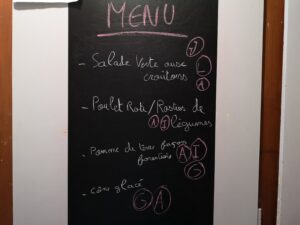 MENU
- Salade Verte aux
croûtons
- Poulet Roti / Rosties de
A I légumes
- Pomme de terre façon
forestière A I
G
- cône glacé
G A